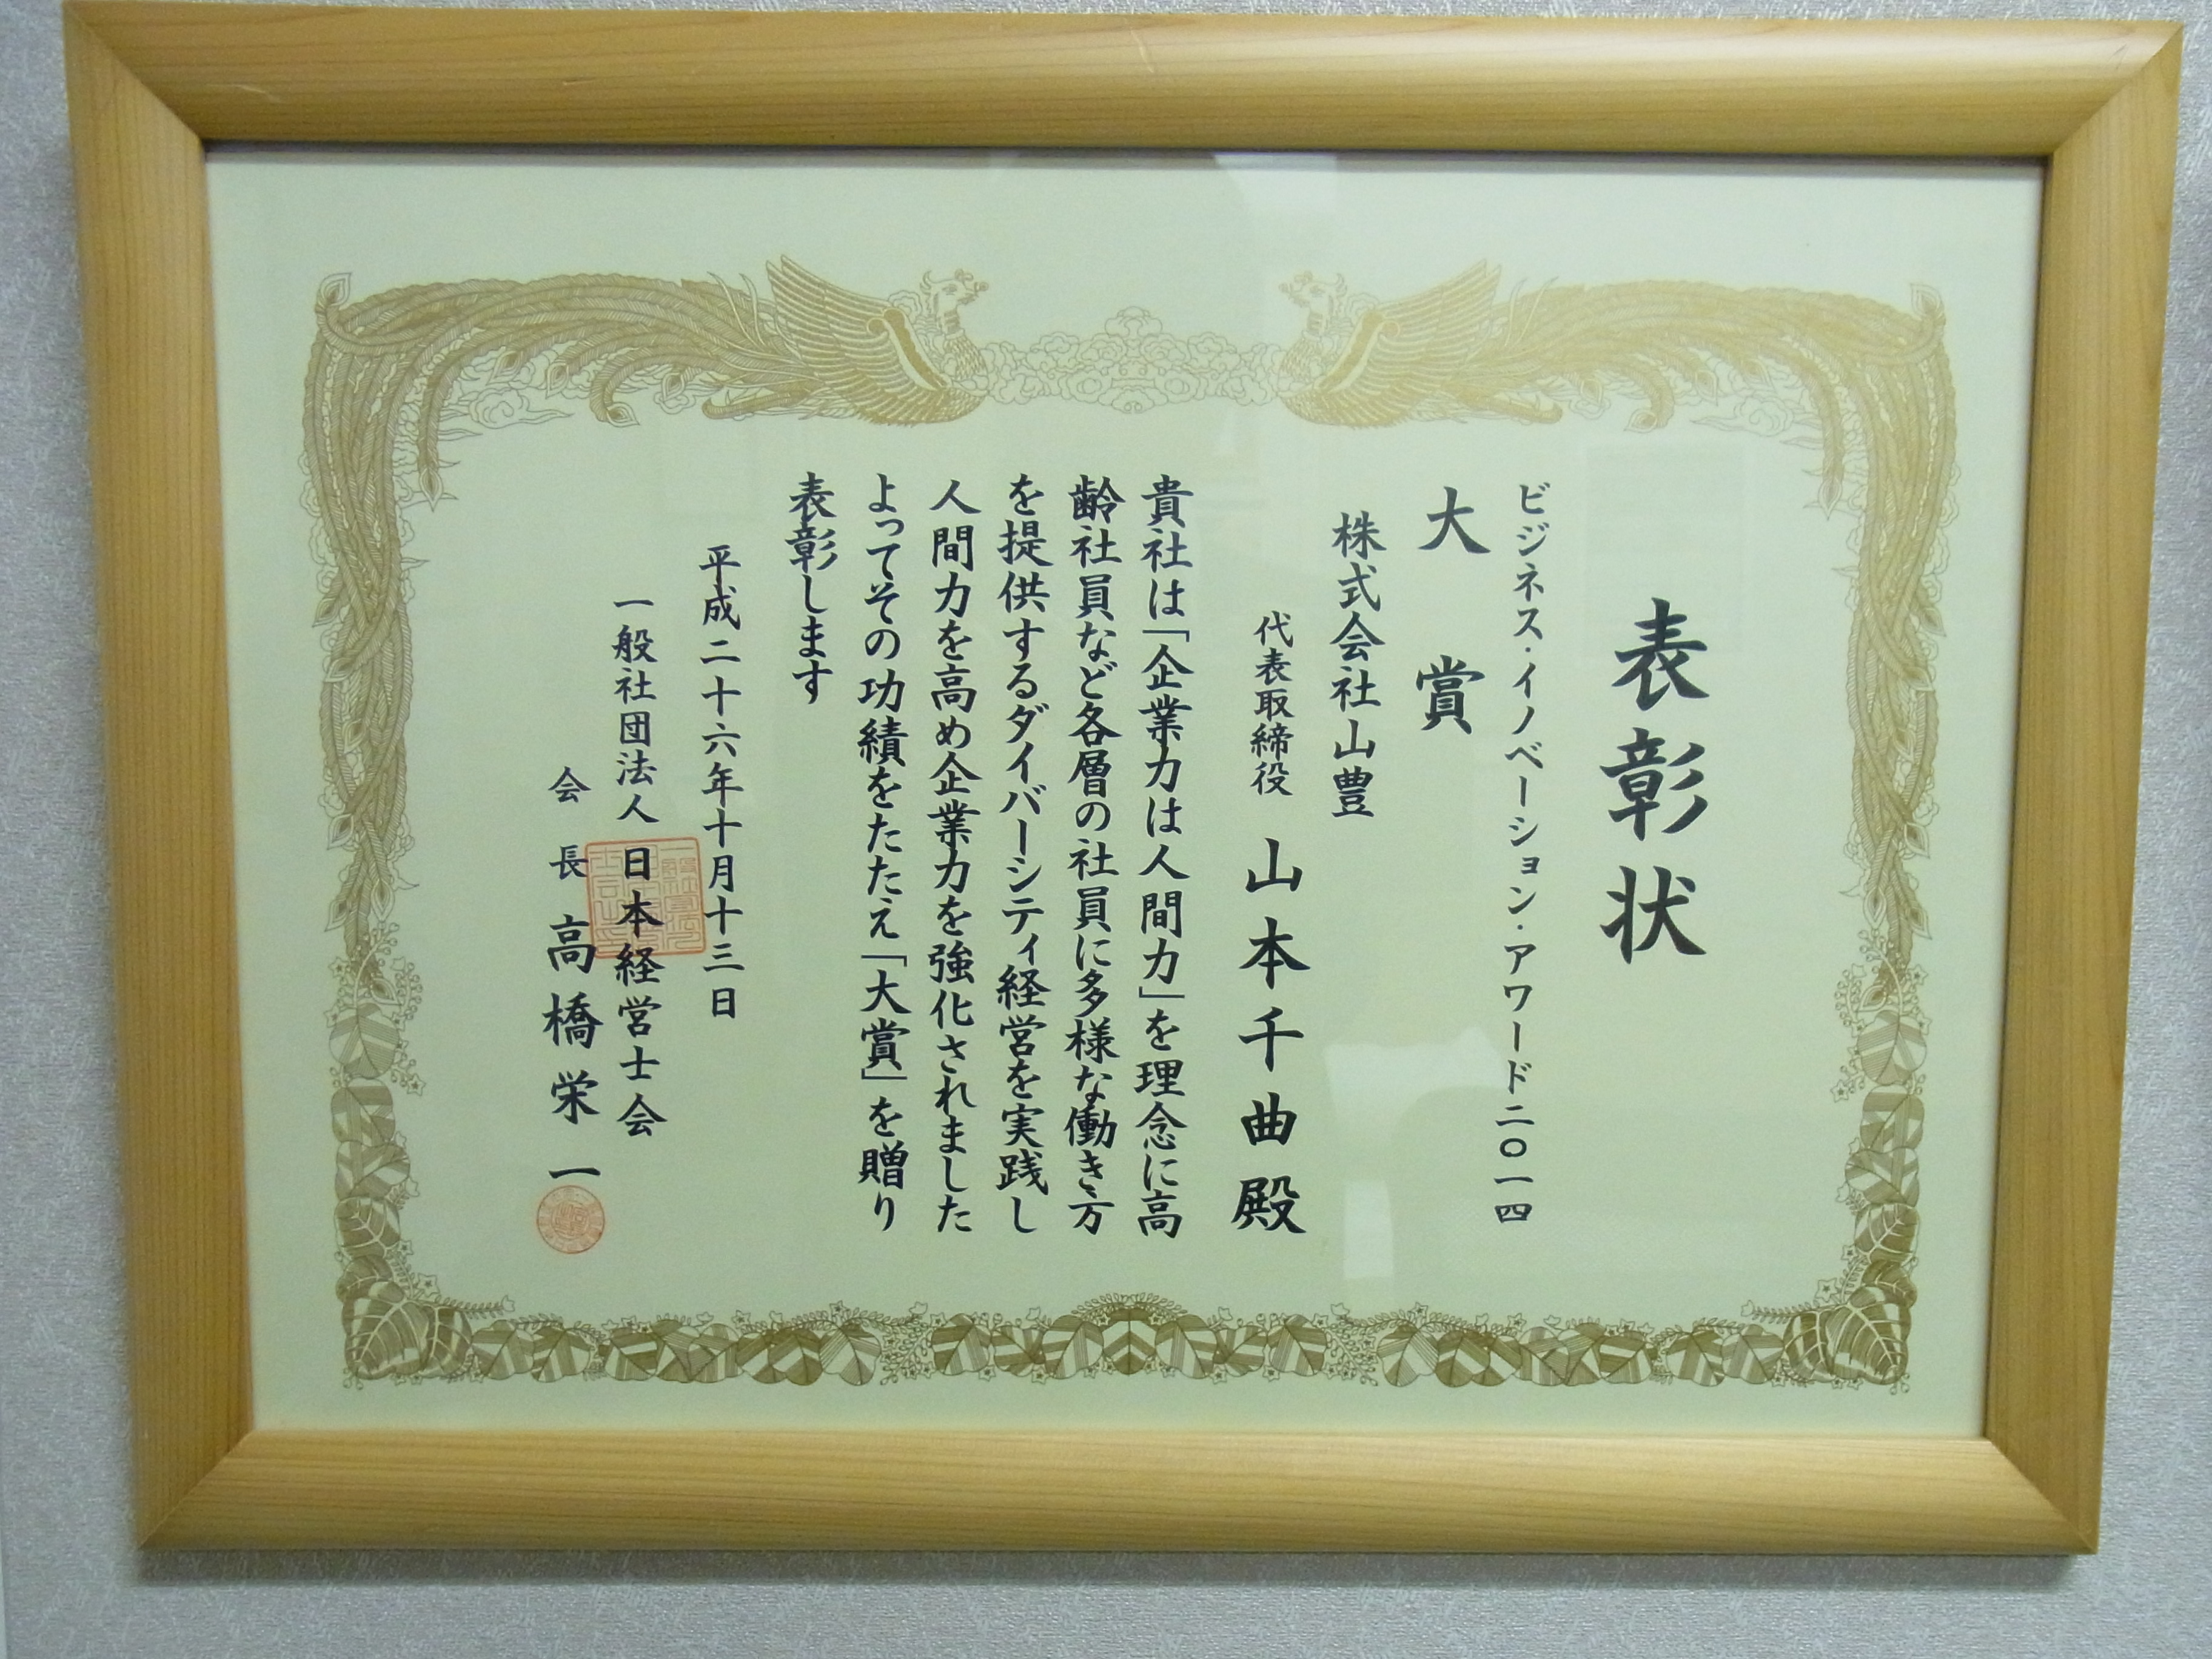 表彰状
ビジネス・イノベーション・アワード二〇一四
大賞
株式会社山豊
代表取締役 山本千曲殿
貴社は「企業力は人間力」を理念に高
齢社員など各層の社員に多様な働き方
を提供するダイバーシティ経営を実践し
人間力を高め企業力を強化されました
よってその功績をたたえ「大賞」を贈り
表彰します
平成二十六年十月十三日
一般社団法人 日本経営士会
会長 高橋栄一